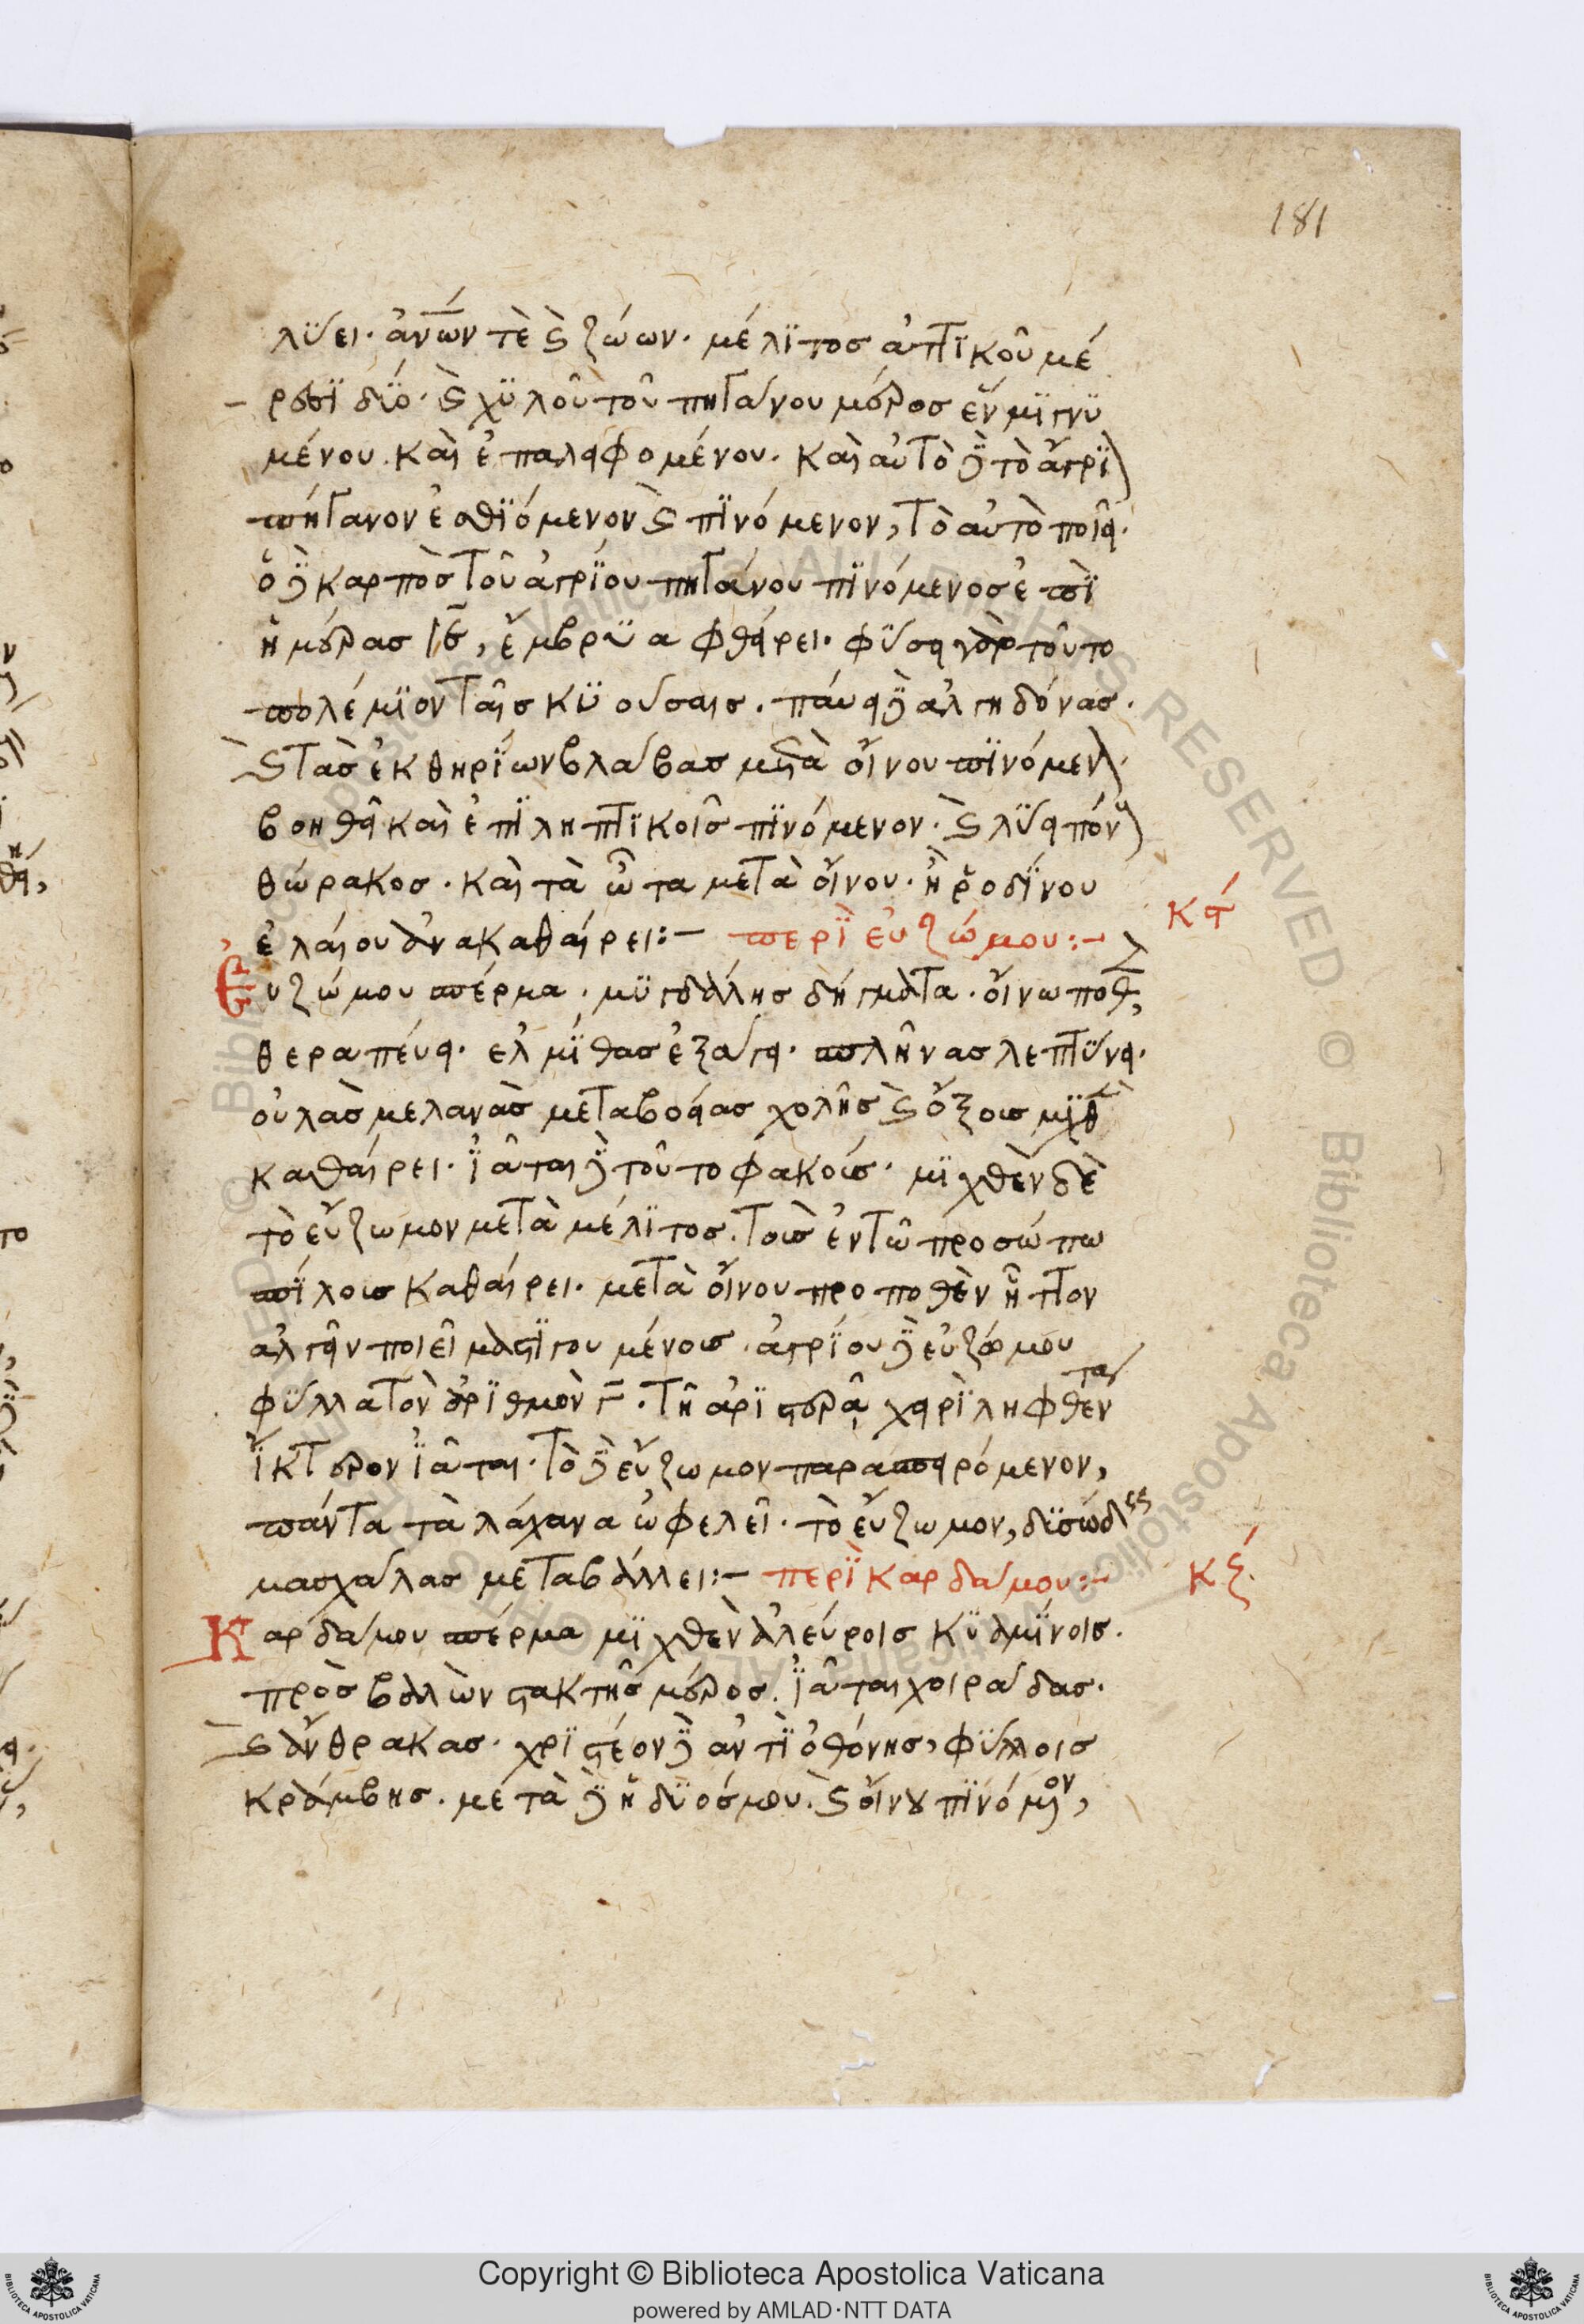 181
λϋει· ἀν̅ω̅ν τὲ ϛ̀ ζώων· μέλϊτοσ ἀττϊκοῦ μέ
ρεσϊ δϋό· ϛ̀ χϋλοῦ τοῦ πηγάνου μέροσ ἓν μϊγνϋ
μένου· καὶ ἐπαλειφομένου· καὶ αὐτὸ δὲ τὸ ἄγρϊ
πήγανον ἐσθϊόμενον ϛ̀ πϊνόμενον, τὸ αὐτὸ ποιεῖ·
ὁ δὲ καρπὸσ τοῦ ἀγρϊου πηγάνου πϊνόμενοσ ἐπϊ
ἡμέρασ ιε̅, ἔμβρϋα φθείρει· φϋσει γὰρ τοῦτο
πολέμϊον ταῖσ κϋούσαισ· παύει δὲ ἀλγηδόνασ·
ϛ̀ τὰσ ἐκ θηρϊων βλάβασ μετὰ οἴνου πϊνόμεν
βοηθεῖ καὶ ἐπϊληπτϊκοῖσ πϊνόμενον· ϛ̀ λϋει πόν
θώρακοσ· καὶ τὰ ὦτα μετὰ οἴνου· ἢ ῥοδϊνου
ἐλαίου ἀνακαθαίρει:– περϊ εὐζώμου:–
κϛ́
Εὐζώμου σπέρμα· μϋγδάλησ δήγματα· οἴνω ποθ
θεραπεύει· ἑλμϊθασ ἐξάγει· σπλῆνασ λεπτϋνει·
οὐλὰσ μελανὰσ μετὰ βοείασ χολῆσ ϛ̀ ὄξουσ μϊχθ
καθαίρει· ϊᾶται δὲ τοῦτο φακούσ· μϊχθὲν δὲ
τὸ εὔζωμον μετὰ μέλϊτοσ· τοὺσ ἐν τῶ προσώπω
σπϊλουσ καθαίρει· μετὰ οἴνου προποθὲν ἧττον
ἀλγεῖν ποιεῖ μαστϊγουμένουσ· ἀγρϊου δὲ εὐζώμου
φϋλλα τὸν ἀρϊθμὸν γ̅· τῆ ἀρϊστερᾶ χειρϊ ληφθέντα
ϊκτερον ϊᾶται· τὸ δὲ εὔζωμον παρασπειρόμενον,
πάντα τὰ λάχανα ὠφελεῖ· τὸ εὔζωμον, δϋσώδεισ
μασχάλασ μεταβάλλει:– περϊ καρδάμου:–
κζ́·
Καρδάμου σπέρμα μϊχθὲν ἀλεύροισ κϋαμϊνοισ·
προσβαλὼν στακτῆσ μέροσ· ϊᾶται χοιράδασ·
ϛ̀ ἄνθρακασ· χρϊστέον δὲ ἀντϊ ὀθόνησ, φϋλλοισ
κράμβησ· μετὰ δὲ ἡδϋόσμου· ϛ̀ οἴνου πϊνόμενον,
Copyright © Biblioteca Apostolica Vaticana
powered by AMLAD·NTT DATA